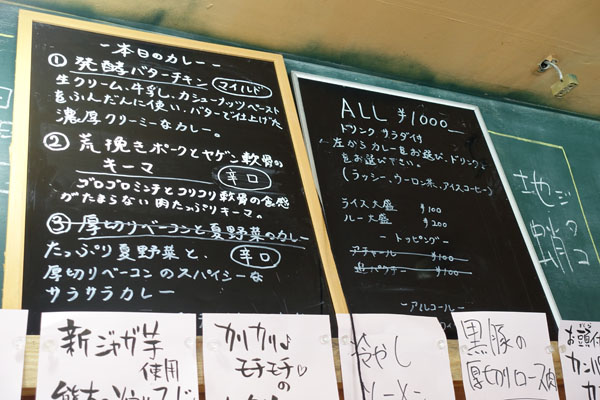 ー本日のカレーー
① 発酵バターチキン マイルド
生クリーム、牛乳、カシューナッツペースト
をふんだんに使い、バターで仕上げた
濃厚クリーミーなカレー。
② 荒挽きポークとヤゲン軟骨の
キーマ 辛口
ゴロゴロミンチとコリコリ軟骨の食感
がたまらない肉たっぷりキーマ。
③ 厚切りベーコンと夏野菜のカレー
たっぷり夏野菜と、 辛口
厚切りベーコンのスパイシーな
サラサラカレー
ALL ¥1000_
ドリンク サラダ付
左からカレーをお選び、ドリンク
をお選び下さい。
(ラッシー、ウーロン茶、アイスコーヒー)
ライス大盛 ¥100
ルー大盛 ¥200
ートッピングー
アチャール ¥100
ーアルコールー
地ジ
蛸コ
新ジャガ芋
使用
カリカリ♪
モチモチ♡
の
冷やし
ラーメン
黒豚の
厚切りロース肉
お頭付